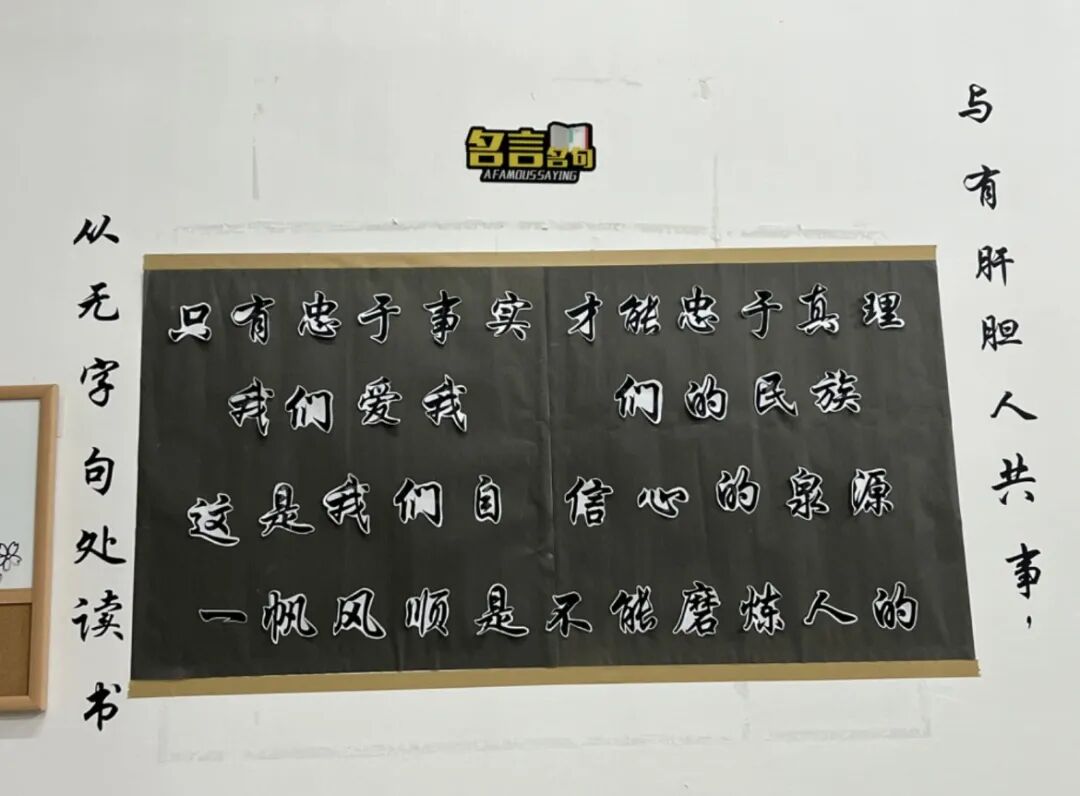 名言名句
A FAMOUS SAYING
与有肝胆人共事，
从无字句处读书
只有忠于事实 才能忠于真理
我们爱我 们的民族
这是我们自 信心的泉源
一帆风顺是不能磨炼人的